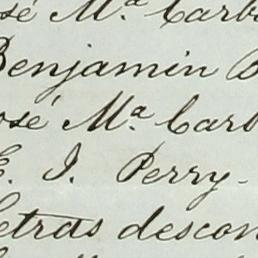 sé Mª Carb
Benjamin B
osé Mª Carb
E. I. Perry.
etras descon